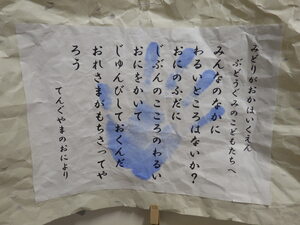 みどりがおかほいくえん
ぶどうぐみのこどもたちへ
みんなのなかに
わるいところはないか?
おにのふだに
じぶんのこころのわるい
おにをかいて
じゅんびしておくんだ
おれさまがもちさってや
ろう
てんぐやまのおにより